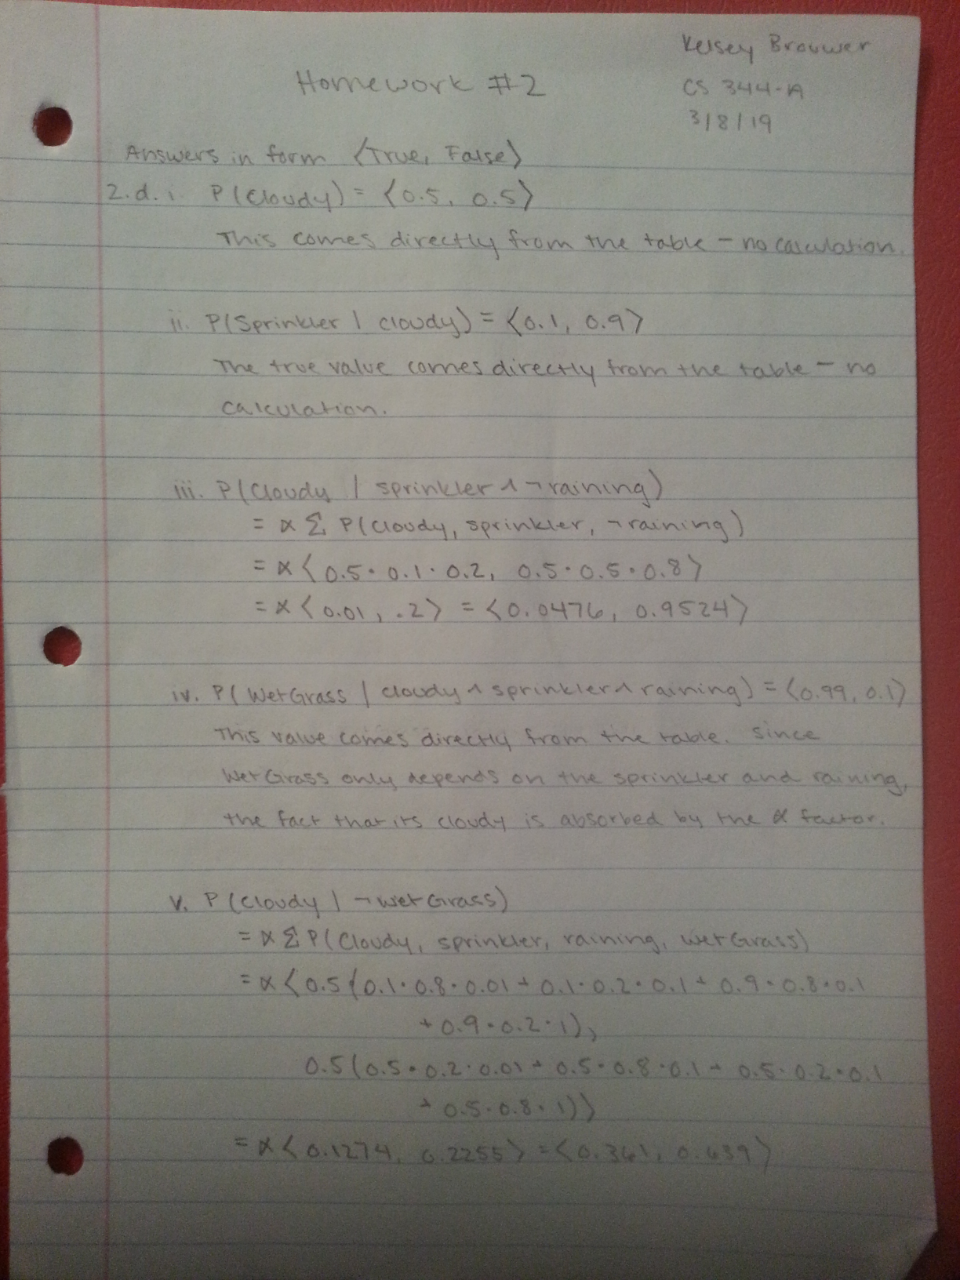 Kelsey Brouwer
Homework #2
CS 344-A
3/8/19
Answers in form ⟨True, False⟩
2.d. i. P(Cloudy) = ⟨0.5, 0.5⟩
This comes directly from the table – no calculation.
ii. P(Sprinkler | cloudy) = ⟨0.1, 0.9⟩
The true value comes directly from the table – no
calculation.
iii. P(Cloudy | sprinkler ∧ ¬raining)
= α Σ P(Cloudy, sprinkler, ¬raining)
= α ⟨0.5 · 0.1 · 0.2, 0.5 · 0.5 · 0.8⟩
= α ⟨0.01, .2⟩ = ⟨0.0476, 0.9524⟩
iv. P(WetGrass | cloudy ∧ sprinkler ∧ raining) = ⟨0.99, 0.1⟩
This value comes directly from the table. Since
WetGrass only depends on the sprinkler and raining,
the fact that its cloudy is absorbed by the α factor.
v. P(Cloudy | ¬wetGrass)
= α Σ P(Cloudy, sprinkler, raining, wetGrass)
= α ⟨0.5(0.1 · 0.8 · 0.01 + 0.1 · 0.2 · 0.1 + 0.9 · 0.8 · 0.1
+ 0.9 · 0.2 · 1),
0.5(0.5 · 0.2 · 0.01 + 0.5 · 0.8 · 0.1 + 0.5 · 0.2 · 0.1
+ 0.5 · 0.8 · 1)⟩
= α ⟨0.1274, 0.2255⟩ = ⟨0.361, 0.639⟩